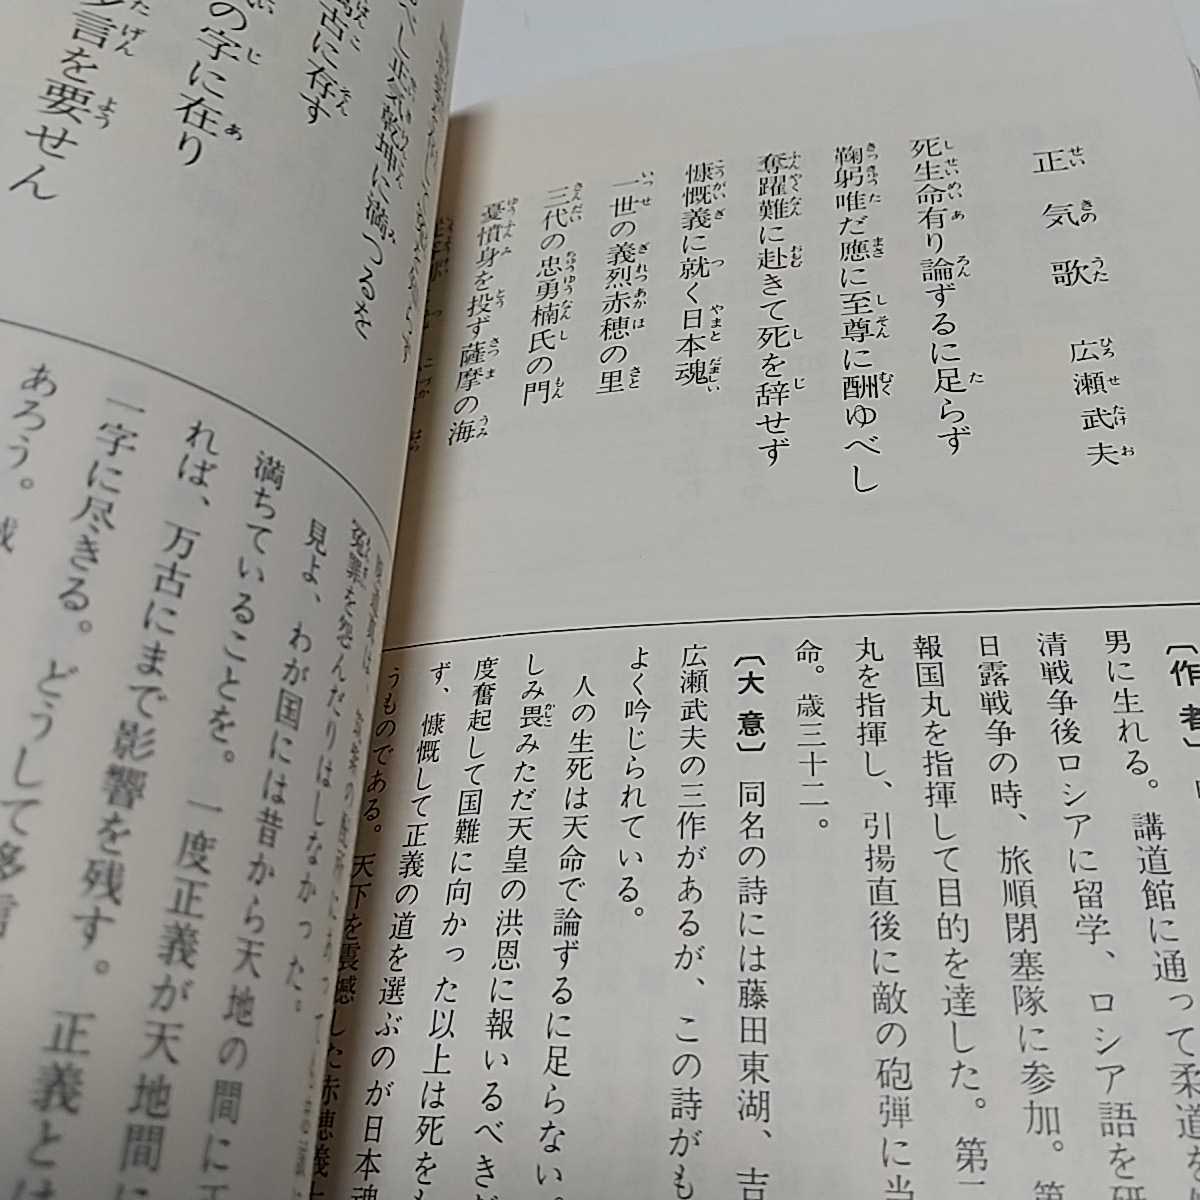 正気歌 広瀬武夫
死生命有り論ずるに足らず
鞠躬唯だ應に至尊に酬ゆべし
奮躍難に赴きて死を辞せず
慷慨義に就く日本魂
一世の義烈赤穂の里
三代の忠勇楠氏の門
憂憤身を投ず薩摩の海
〔作者〕
男に生れる。講道館に通って柔道を
清戦争後ロシアに留学、ロシア語を研
日露戦争の時、旅順閉塞隊に参加。第
報国丸を指揮して目的を達した。第一
丸を指揮し、引揚直後に敵の砲弾に当
命。歳三十二。
〔大意〕同名の詩には藤田東湖、吉
広瀬武夫の三作があるが、この詩がも
よく吟じられている。
人の生死は天命で論ずるに足らない。
しみ畏みただ天皇の洪恩に報いるべきだ
度奮起して国難に向かった以上は死をも
ず、慷慨して正義の道を選ぶのが日本魂
うものである。天下を震撼した赤穂義
べし正気乾坤に満つるを
古に存す
の字に在り
多言を要せん
冤罪を怨んだりはしなかった。
見よ、わが国には昔から天地の間に正
満ちていることを。一度正義が天地間に
れば、万古にまで影響を残す。正義とは
一字に尽きる。どうして多言
あろう。